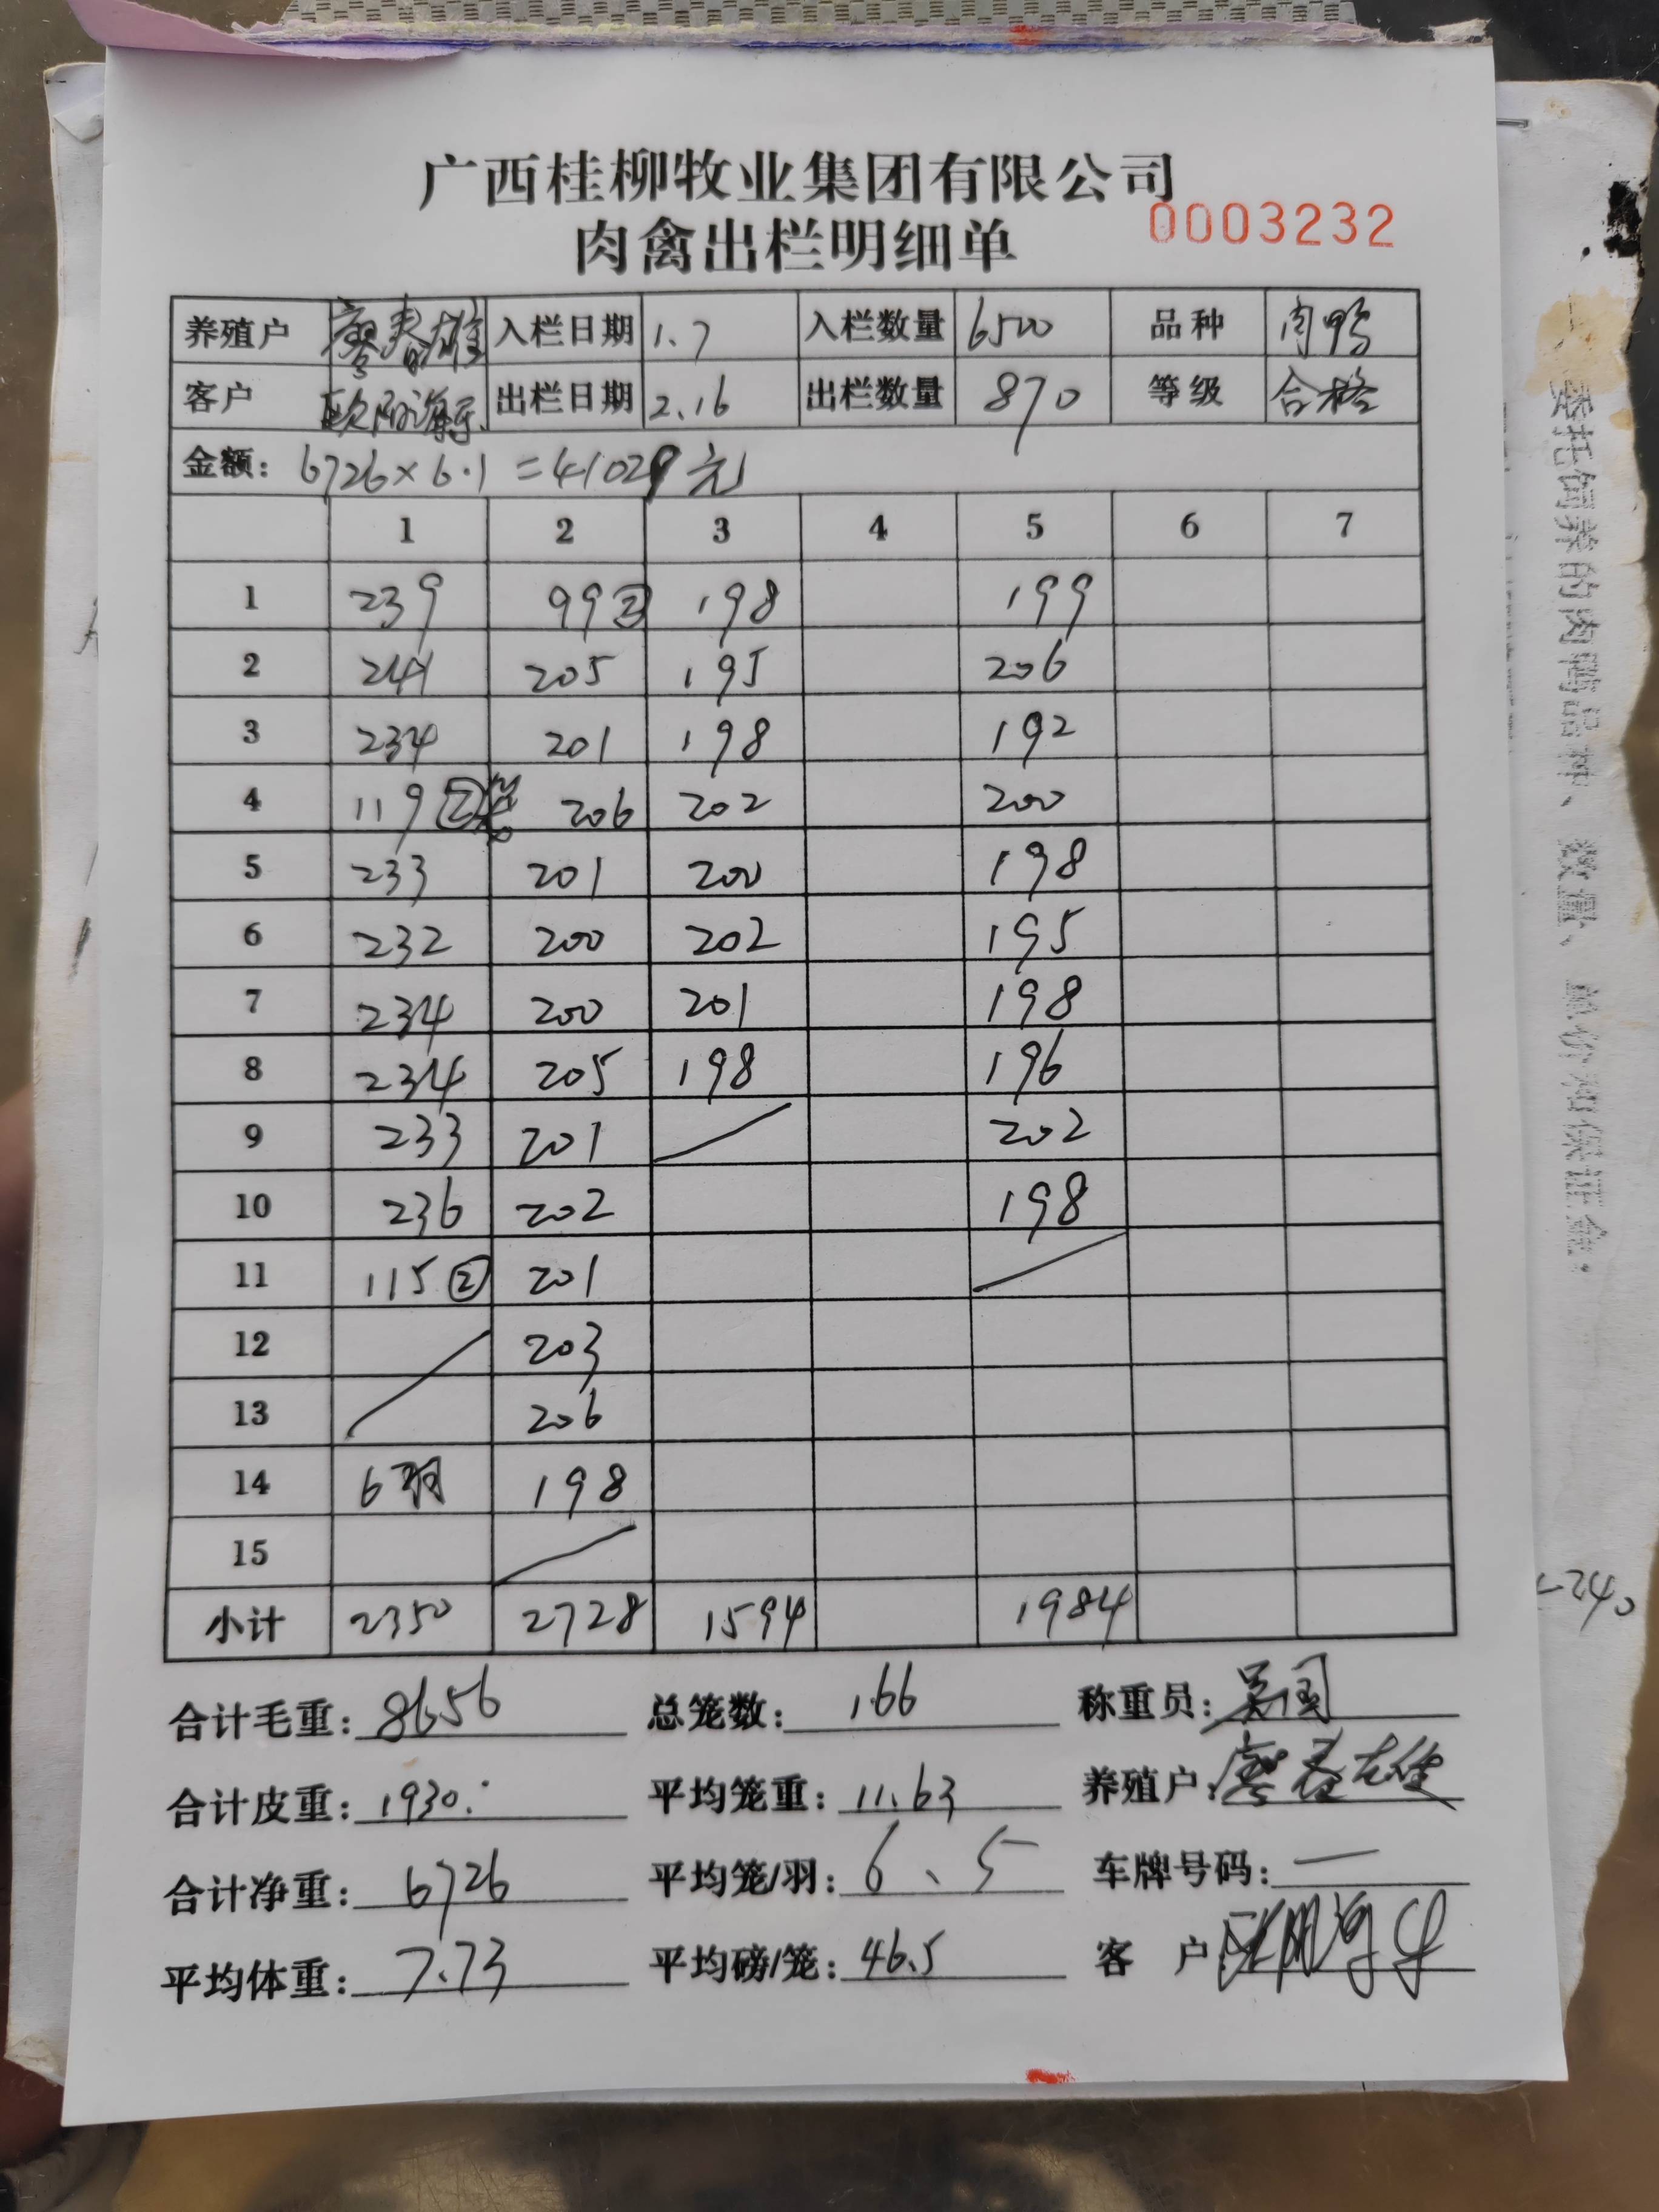 广西桂柳牧业集团有限公司
肉禽出栏明细单
0003232
养殖户 廖春雄 入栏日期 1.7 入栏数量 6500 品种 肉鸭
客户 出栏日期 2.16 出栏数量 870 等级 合格
金额: 6726×6.1=41029元
1 2 3 4 5 6 7
1 239 99② 198 199
2 241 205 195 206
3 234 201 198 192
4 119② 206 202 200
5 233 201 200 198
6 232 200 202 195
7 234 200 201 198
8 234 205 198 196
9 233 201 202
10 236 202 198
11 115② 201
12 203
13 206
14 6羽 198
15
小计 2350 2728 1594 1984
合计毛重: 8656 总笼数: 166 称重员:
合计皮重: 1930. 平均笼重: 11.63 养殖户: 廖春雄
合计净重: 6726 平均笼/羽: 6、5 车牌号码: 一
平均体重: 7.73 平均磅/笼: 46.5 客户:
委托饲养的肉鸭品种、数量、单价和保证金.
240